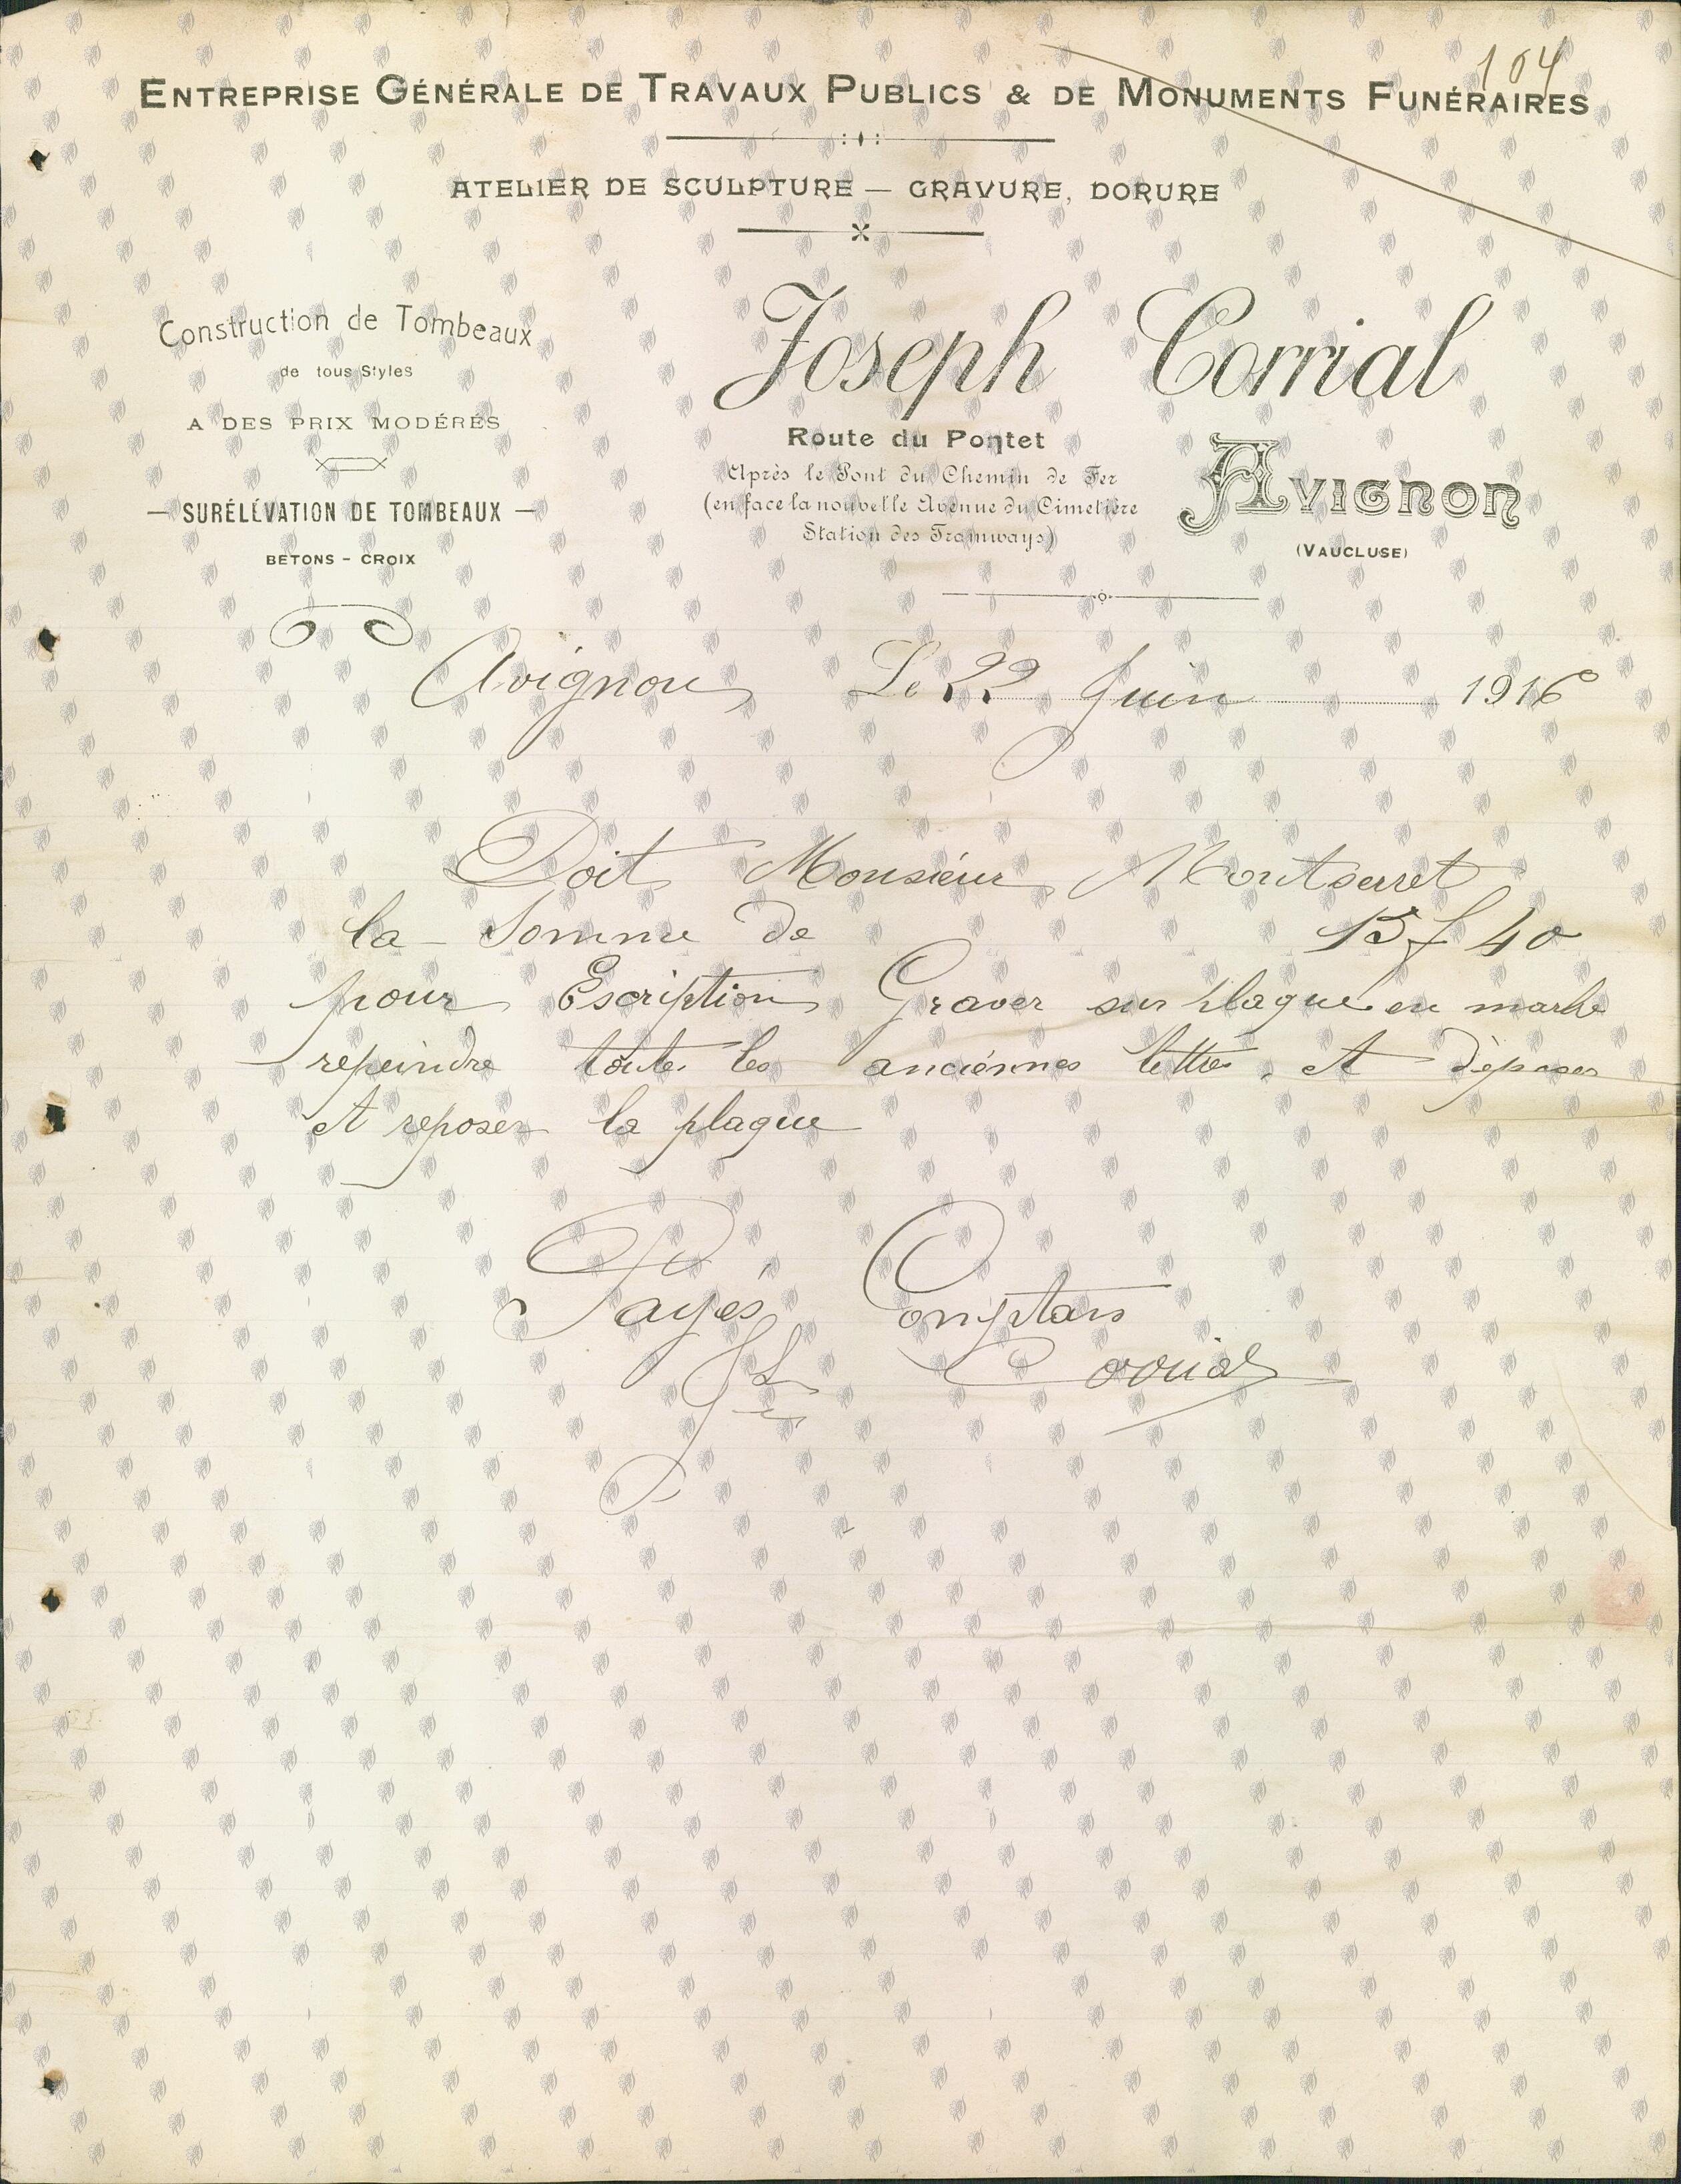 104
ENTREPRISE GÉNÉRALE DE TRAVAUX PUBLICS & DE MONUMENTS FUNÉRAIRES
ATELIER DE SCULPTURE — GRAVURE, DORURE
Construction de Tombeaux
de tous Styles
A DES PRIX MODÉRÉS
— SURÉLÉVATION DE TOMBEAUX —
BETONS - CROIX
Joseph Corrial
Route du Pontet
Après le Pont du Chemin de Fer
(en face la nouvelle Avenue du Cimetière
Station des Tramways)
AVIGNON
(VAUCLUSE)
Avignon Le 22 Juin 1916
Doit Monsieur Montserret
la Somme de 15f 40
pour Escription Graver sur plaque en marbe
repeindre toute les anciénnes lettres, et déposer
et reposer la plaque
Payés Comptans
Corrial